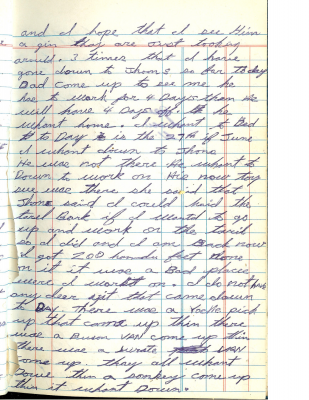 and I hope that I see Him
a gin they are out tooking
arould. 3 times that I have
gone down to Jhons so far today
Dad come up to see me he
has to work for 4 Days than he
will have 4 Days off he
whant home. I whant to Bed
to Day is the 27th of June
I whant down to Jhons
He was not there He whant to
Down to work on His now toy
sue was there she said that
Jhons said I could haid the
tarel Bark if I wanted to go
up and work on the tarel
so I did and I am Back now
I got 200 hondu feet done
on it it was a Bad place
were I workt on. I do not
any deer yet that came down
to Day there was a pick
up that came up thin there
was a van come up thin
there was a VAN
come up thay all whant
Down thin a come up
thin it whant Down.